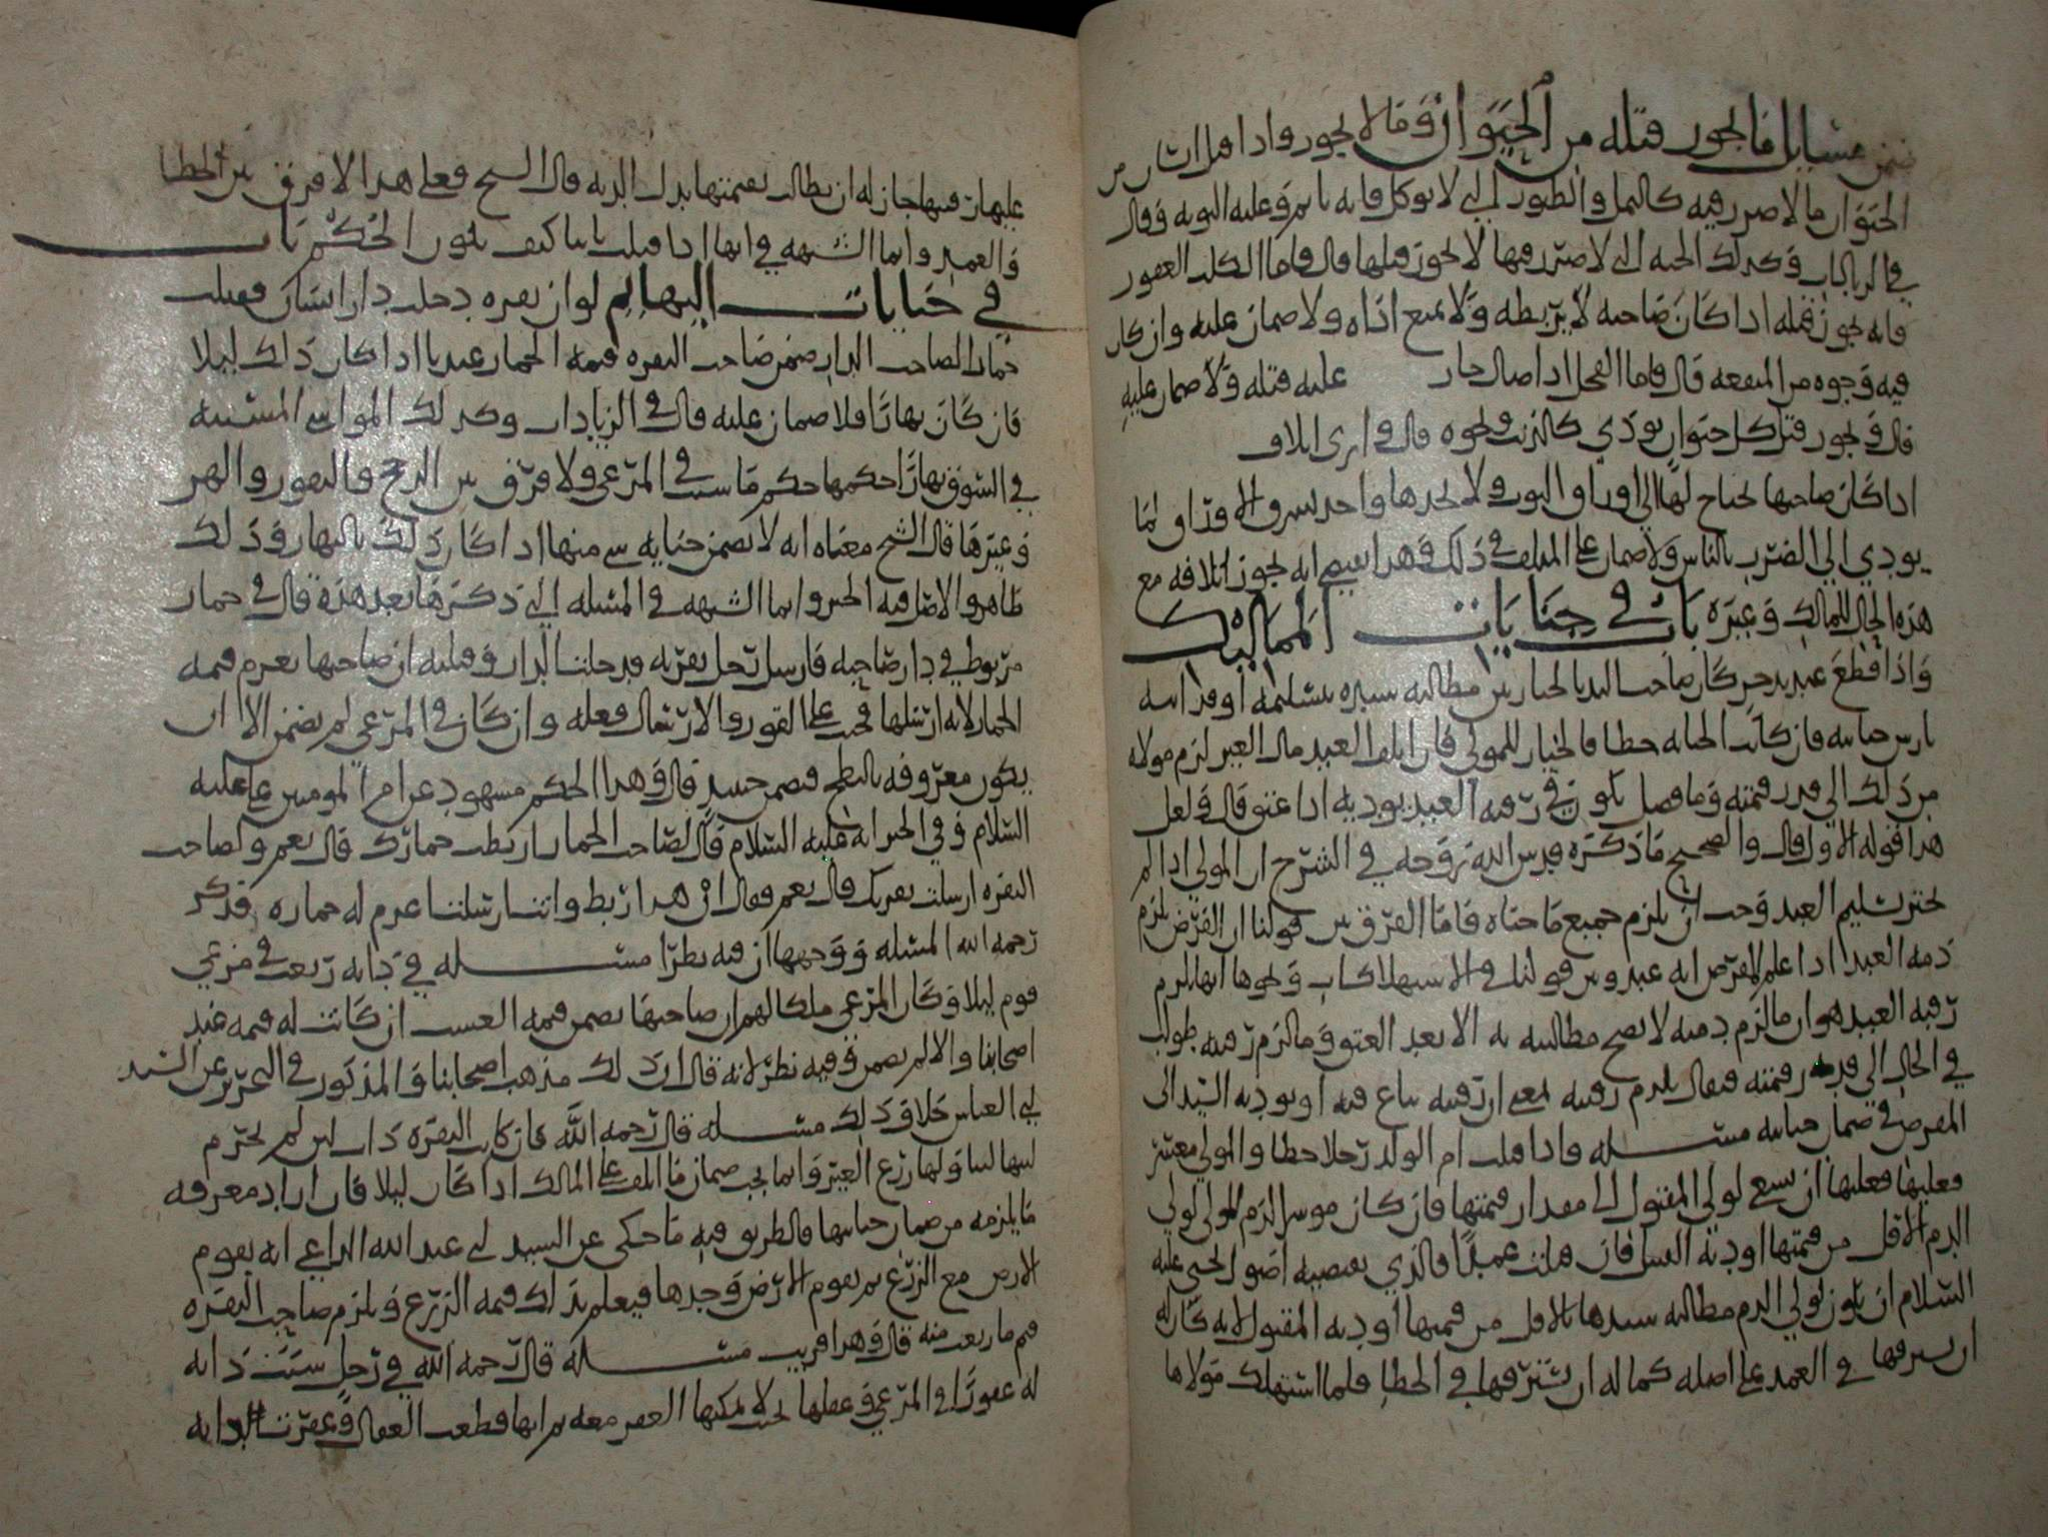 ضمن مسايل ما يجوز قتله من الحيوان وما لا يجوز واذا قتل انسان من
الحيوان ما لا ضرر فيه كالنمل والطيور التي لا توكل فانه ياثم وعليه التوبه وقال
في الزيادات وكذلك الحيه التي لا ضرر فيها لا يجوز قتلها قال فاما الكلب العقور
فانه يجوز قتله اذا كان صاحبه لا يربطه ولا يمنع اذاه ولا ضمان عليه وان كان
فيه وجوه من المنفعه قال فاما الفحل اذا صال جاز عليه قتله ولا ضمان عليه
قال ويجوز قتل كل حيوان يوذي كالذئب ونحوه قال وارى اتلاف
اذا كان صاحبها يحتاج لها الى اوراق التوت ولا يجدها واخذ يسرق الاوراق لما
يودي الى الضرر بالناس ولا ضمان على المتلف في ذلك وهذا يقتضي انه يجوز اتلافه مع
هذه الحال للمالك وغيره باب في جنايات المماليك
واذا قطع عبد يد حر كان صاحب اليد بالخيار بين مطالبة سيده بتسليمه او فدايه
بارش جنايته فان كانت الجنايه خطا فالخيار للمولى فان اتلف العبد مال الغير لزم مولاه
من ذلك الى قدر قيمته وما فضل يكون في رقبة العبد يوديه اذا عتق قال ولعل
هذا قوله الاول قال والصحيح ما ذكره قدس الله روحه في الشرح ان المولى اذا لم
يختر تسليم العبد وجب ان يلزم جميع ما جناه فاما الفرق بين قولنا ان القرض يلزم
ذمة العبد اذا علم المقرض انه عبد وبين قولنا في الاستهلاكات ونحوها انها تلزم
رقبة العبد هو ان ما لزم ذمته لا تصح مطالبته به الا بعد العتق وما لزم رقبته طولب
في الحال الى قدر قيمته فيقال يلزم رقبته بمعنى ان رقبته تباع فيه او يوديه السيد الى
المقرض في ضمان جنايته مسئله واذا قتلت ام الولد رجلا خطا والمولى معسر
فعليها فعليها ان تسعى لولي المقتول الى مقدار قيمتها فان كان موسرا لزم المولى لولي
الدم الاقل من قيمتها او دية القتيل فان قتلت عمدا فالذي يقتضيه اصول يحيى عليه
السلام ان يكون لولي الدم مطالبة سيدها بالاقل من قيمتها او دية المقتول لانه كان له
ان يسترقها في العمد على اصله كما له ان يسترقها في الخطا فلما استهلك مولاها
عليها رقبتها جاز له ان يطالب بقيمتها بدل الديه قال الشيخ فعلى هذا لا فرق بين الخطا
والعمد وانما الشبهه في انها اذا قتلت ثانيا كيف يكون الحكم باب
في جنايات البهايم لو ان بقره دخلت دار انسان فقتلت
حمارا لصاحب الدار ضمن صاحب البقره قيمة الحمار عندنا اذا كان ذلك ليلا
فان كان نهارا فلا ضمان عليه قال في الزيادات وكذلك المواشي المسيبه
في السوق نهارا حكمها حكم ما سيب في المرعى ولا فرق بين الدجاج والبقور والهر
وغيرها قال الشيخ معناه انه لا يضمن جناية شي منها اذا كان ذلك بالنهار وذلك
ظاهر والاصل فيه الخبر وانما الشبهه في المسئله التي ذكرها بعد هذه قال في حمار
مربوط في دار صاحبه فارسل رجل بقرته فدخلت الدار وقتلته ان صاحبها يغرم قيمة
الحمار لانه ارسلها فيجب على الفور والارسال فعله وان كان في المرعى لم يضمن الا ان
يكون معروفه بالنطح فيضمن حينيذ قال وهذا الحكم مشهود عن امير المومنين علي عليه
السلام وفي الخبر انه عليه السلام قال لصاحب الحمار اربطت حمارك قال نعم ولصاحب
البقره ارسلت بقرتك قال نعم فقال ان هذا ربط وانت ارسلت اغرم له حماره فذكر
رحمه الله المسئله ووجهها ان فيه نظرا مسئله في دابة رتعت في مزرعي
قوم ليلا وكان المرعى ملكا لهم ان صاحبها يضمن قيمة العشب ان كانت له قيمه عند
اصحابنا والا لم يضمن وفيه نظر لانه قال ان ذلك مذهب اصحابنا والمذكور في التحرير عن السيد
ابي العباس خلاف ذلك مسئله قال رحمه الله فان كانت البقره ذات لبن لم يحرم
لبنها لبناولها زرع الغير وانما يجب ضمان ما اتلف على المالك اذا كان ليلا فان اراد معرفة
ما يلزمه من ضمان جنايتها فالطريق فيه ما حكي عن السيد ابي عبد الله الداعي انه يقوم
الارض مع الزرع ثم يقوم الارض وحدها فيعلم بذلك قيمة الزرع ويلزم صاحب البقره
قيمة ما رتعت منه قال وهذا قريب مسئله قال رحمه الله في رجل سيب دابه
له عقورا في المرعى وعقلها بحيث لا يمكنها العقر معه ثم انها قطعت العقال وعقرت دابه